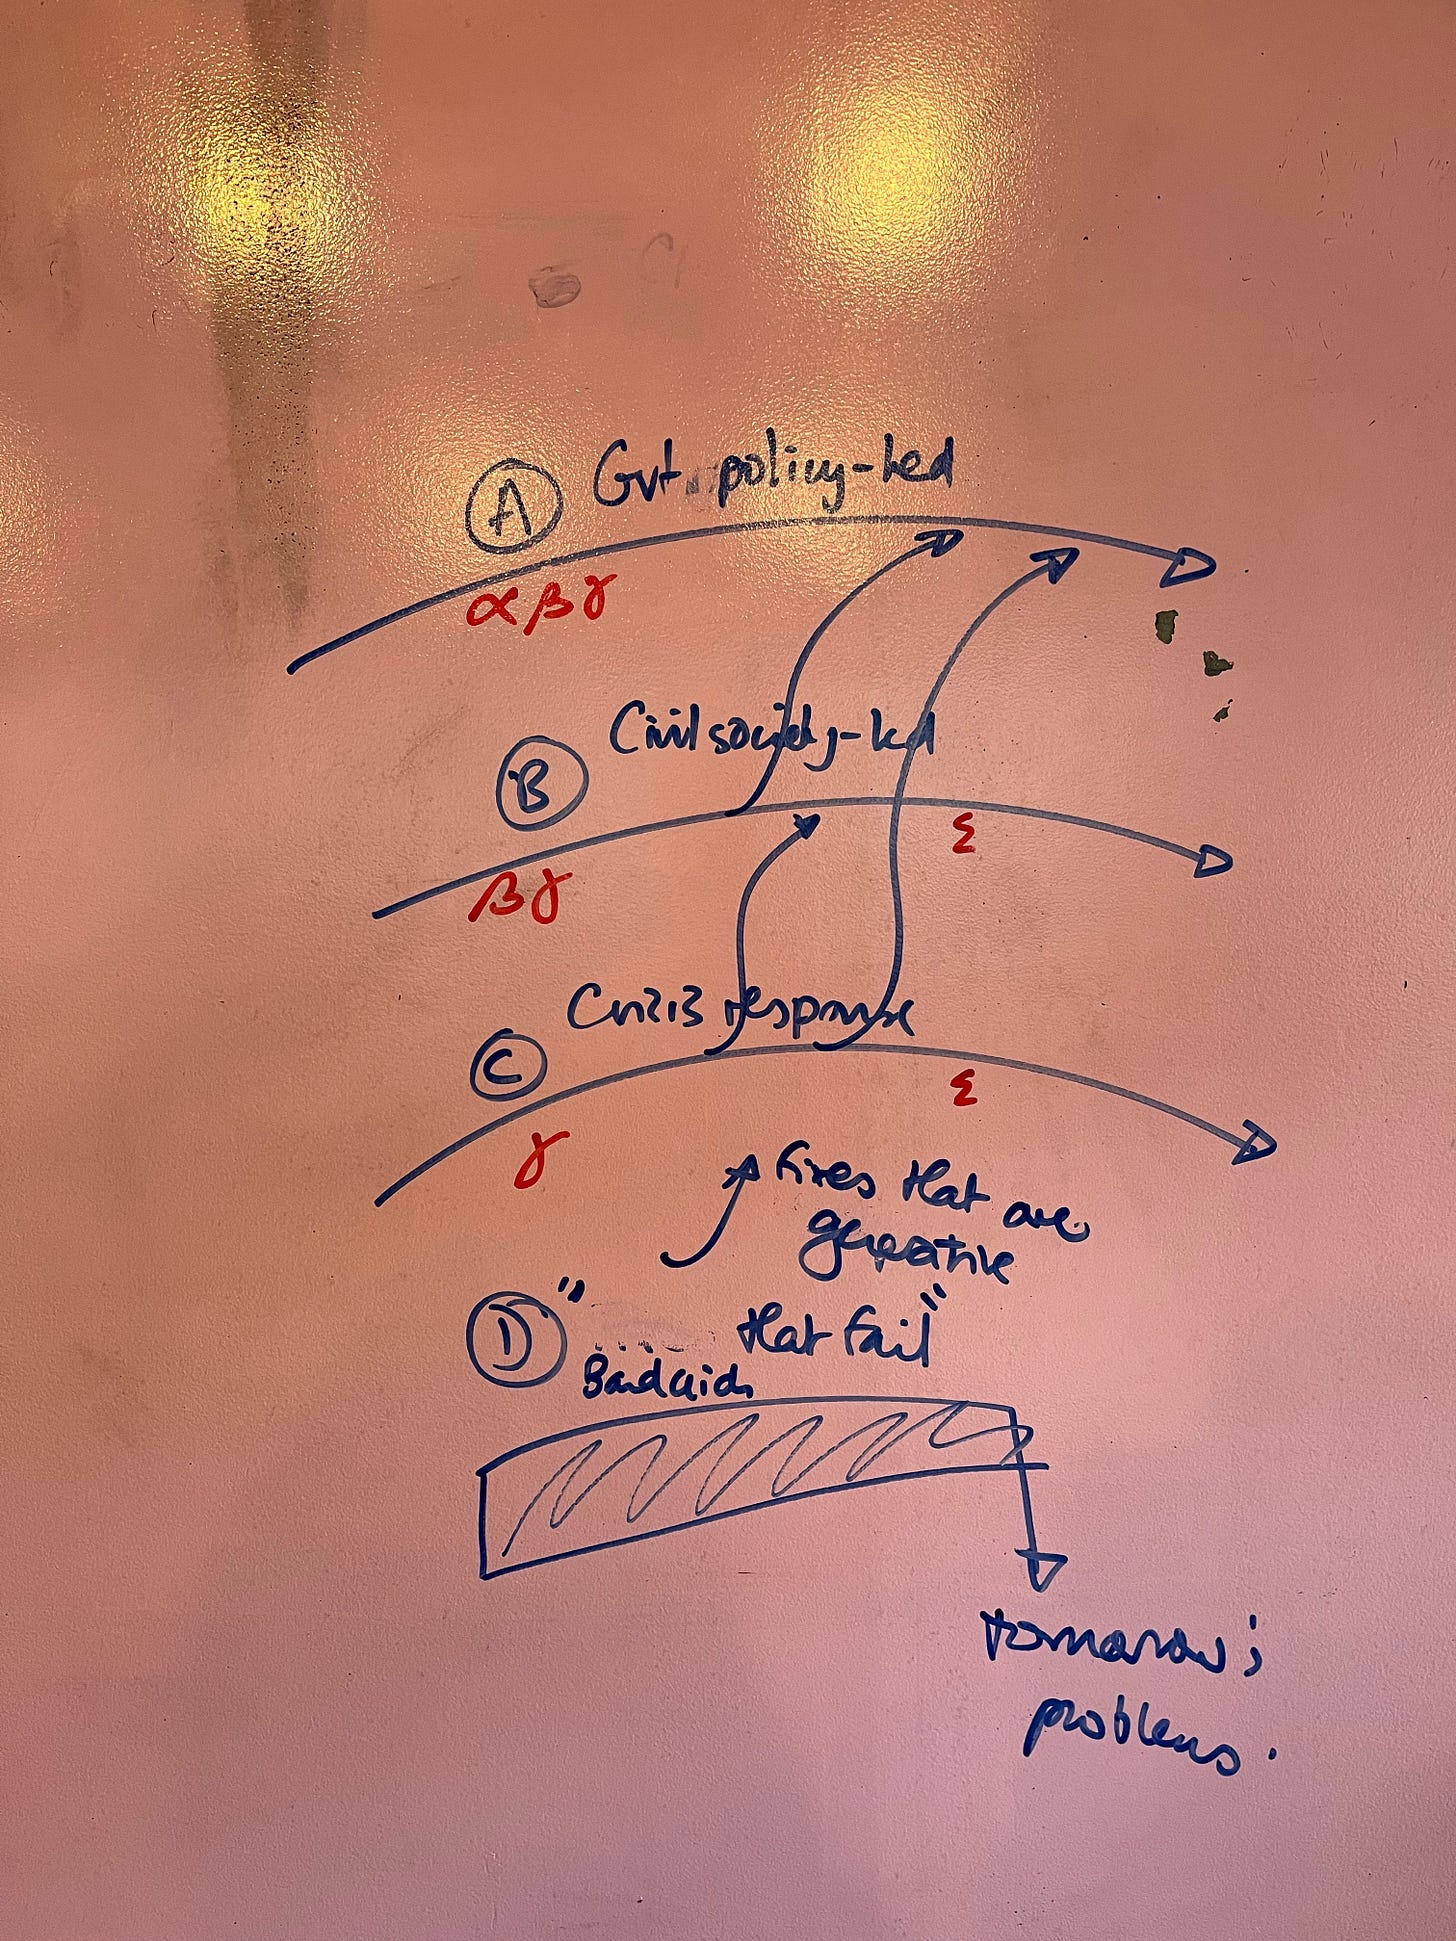 A Gvt. policy-led
α β γ
B Civil society-led
β γ
Σ
C Crisis response
γ
Σ
fixes that are
generative
D " that fail"
Bandaids
tomorrow's
problems.